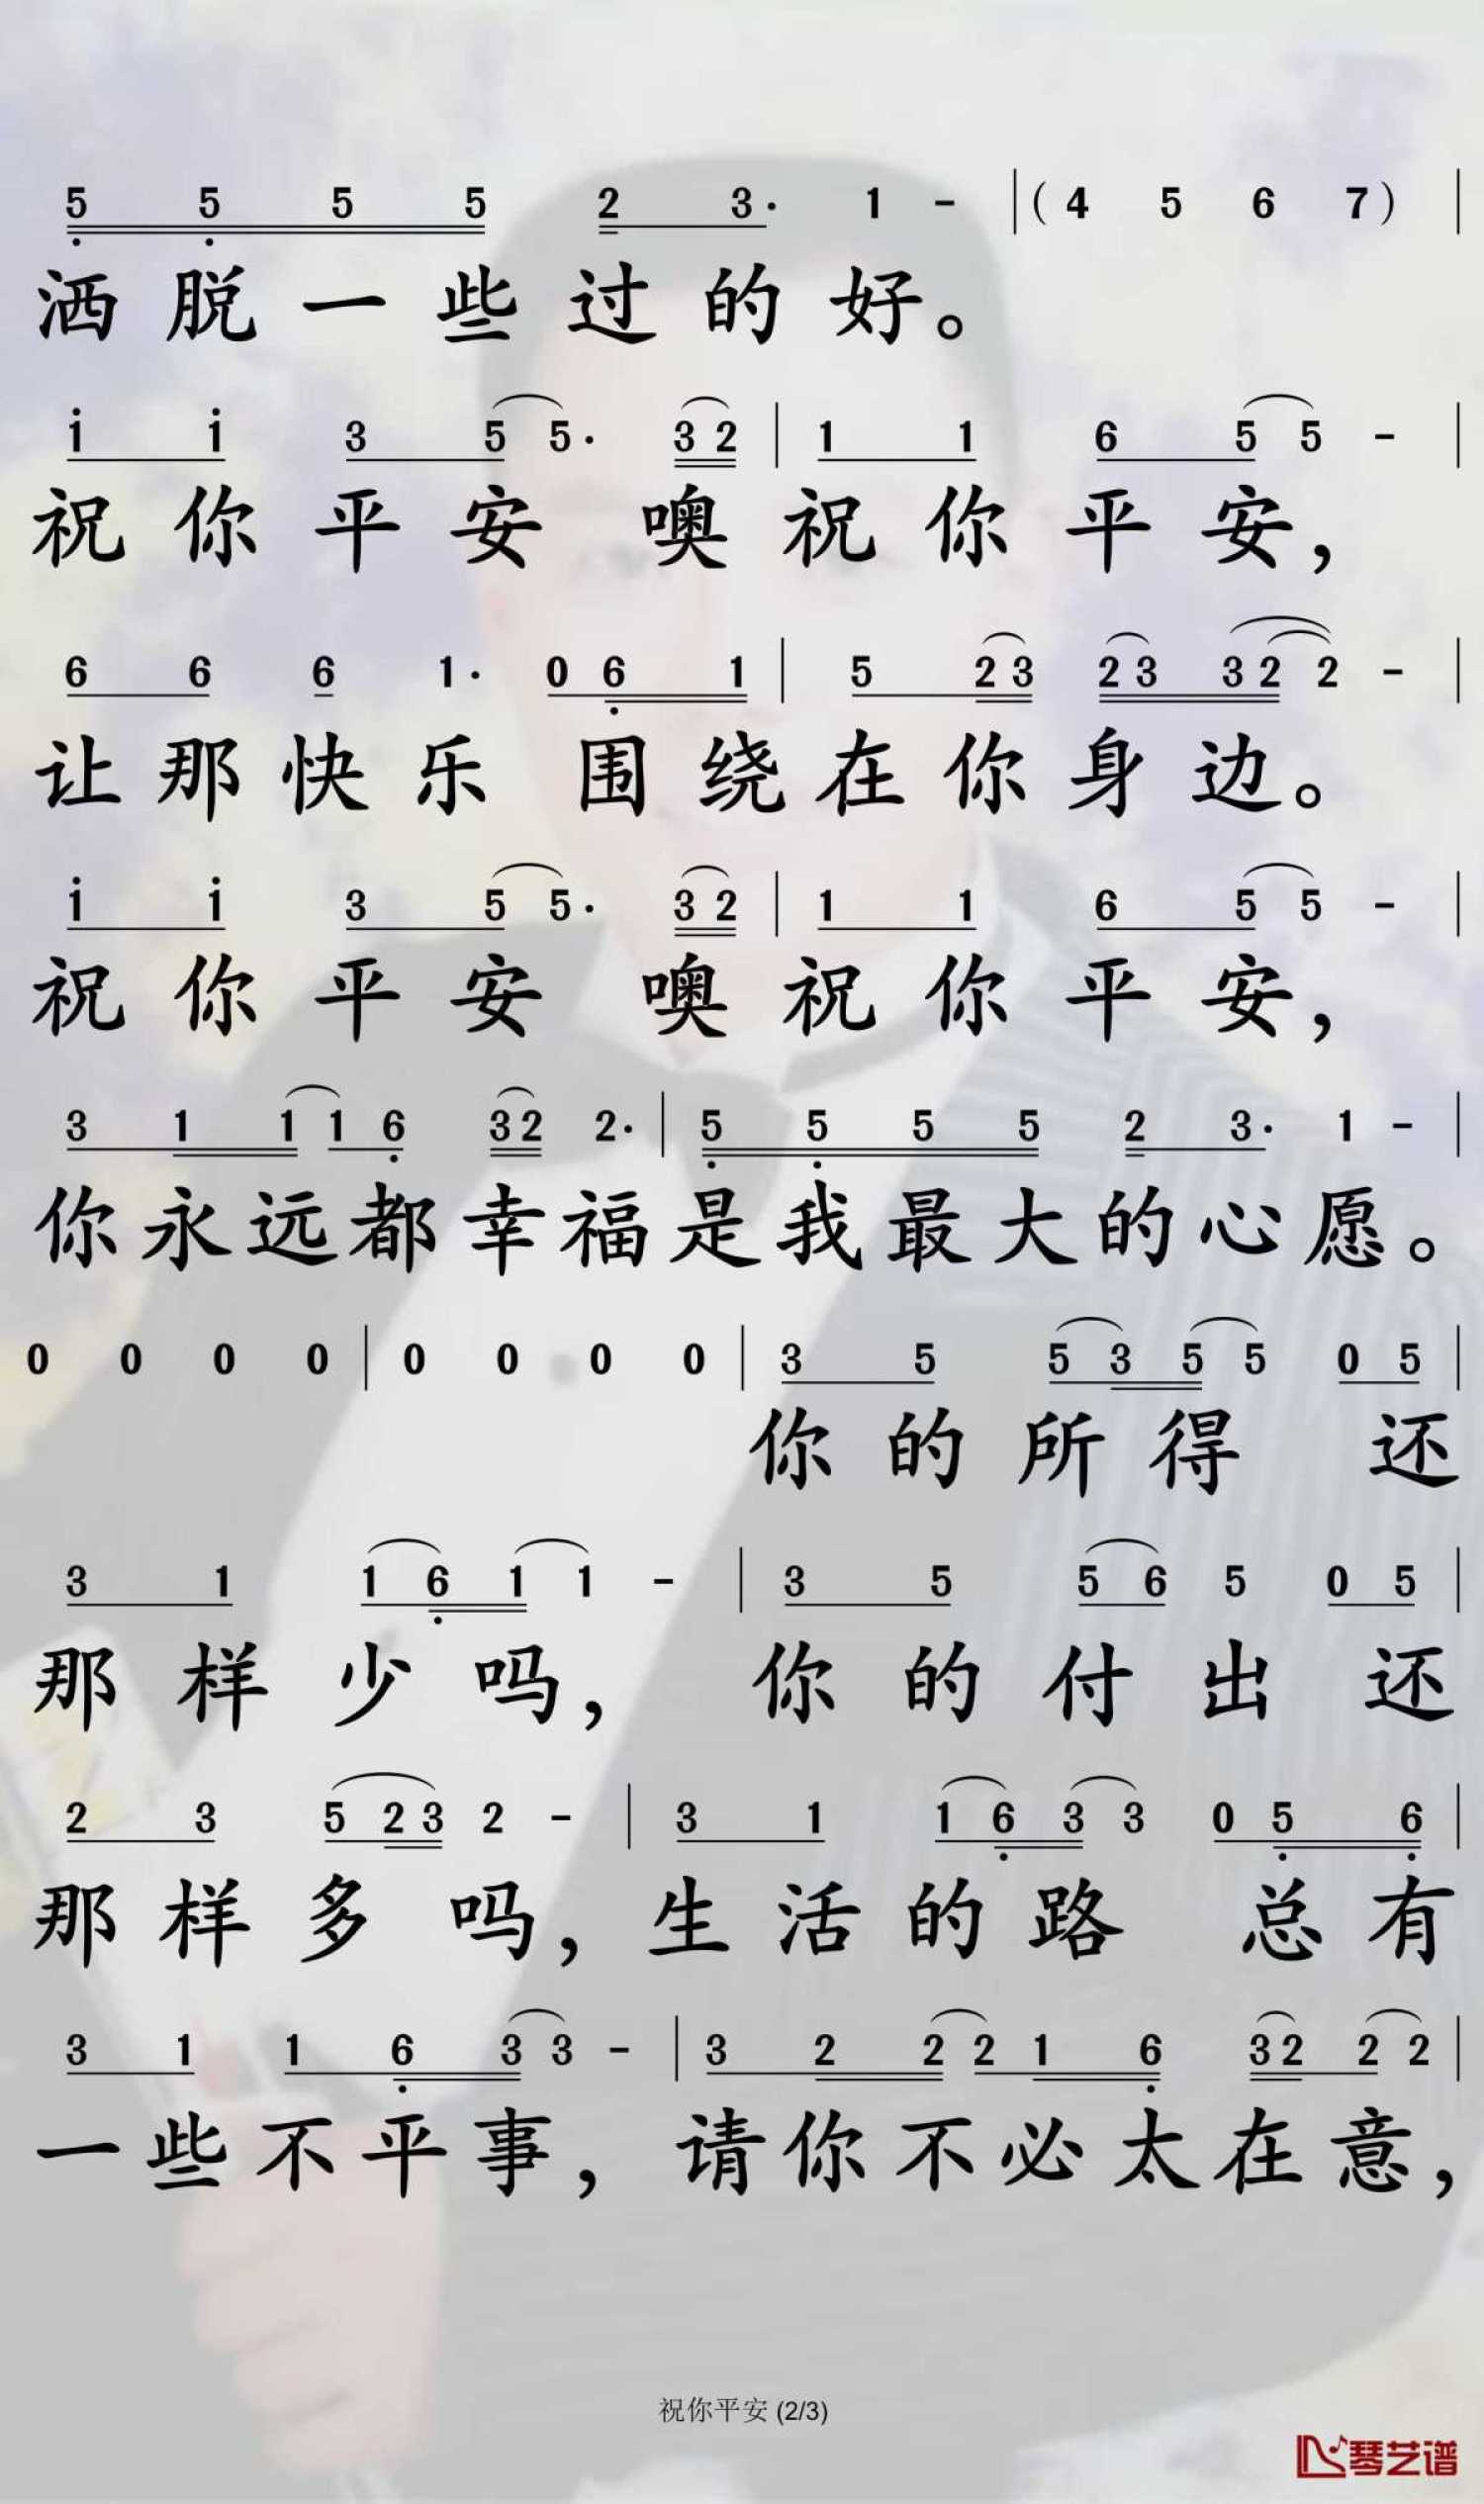 5 5 5 5 2 3· 1 - | ( 4 5 6 7 ) |
洒脱一些过的好。
i i 3 5 5· 3 2 | 1 1 6 5 5 - |
祝你平安 噢祝你平安,
6 6 6 1· 0 6 1 | 5 2 3 2 3 3 2 2 - |
让那快乐 围绕在你身边。
i i 3 5 5· 3 2 | 1 1 6 5 5 - |
祝你平安 噢祝你平安,
3 1 1 1 6 3 2 2· | 5 5 5 5 2 3· 1 - |
你永远都幸福是我最大的心愿。
0 0 0 0 | 0 0 0 0 | 3 5 5 3 5 5 0 5 |
你的所得 还
3 1 1 6 1 1 - | 3 5 5 6 5 0 5 |
那样少吗, 你的付出 还
2 3 5 2 3 2 - | 3 1 1 6 3 3 0 5 6 |
那样多吗,生活的路 总有
3 1 1 6 3 3 - | 3 2 2 2 1 6 3 2 2 2 |
一些不平事,请你不必太在意,
祝你平安 (2/3)
琴艺谱